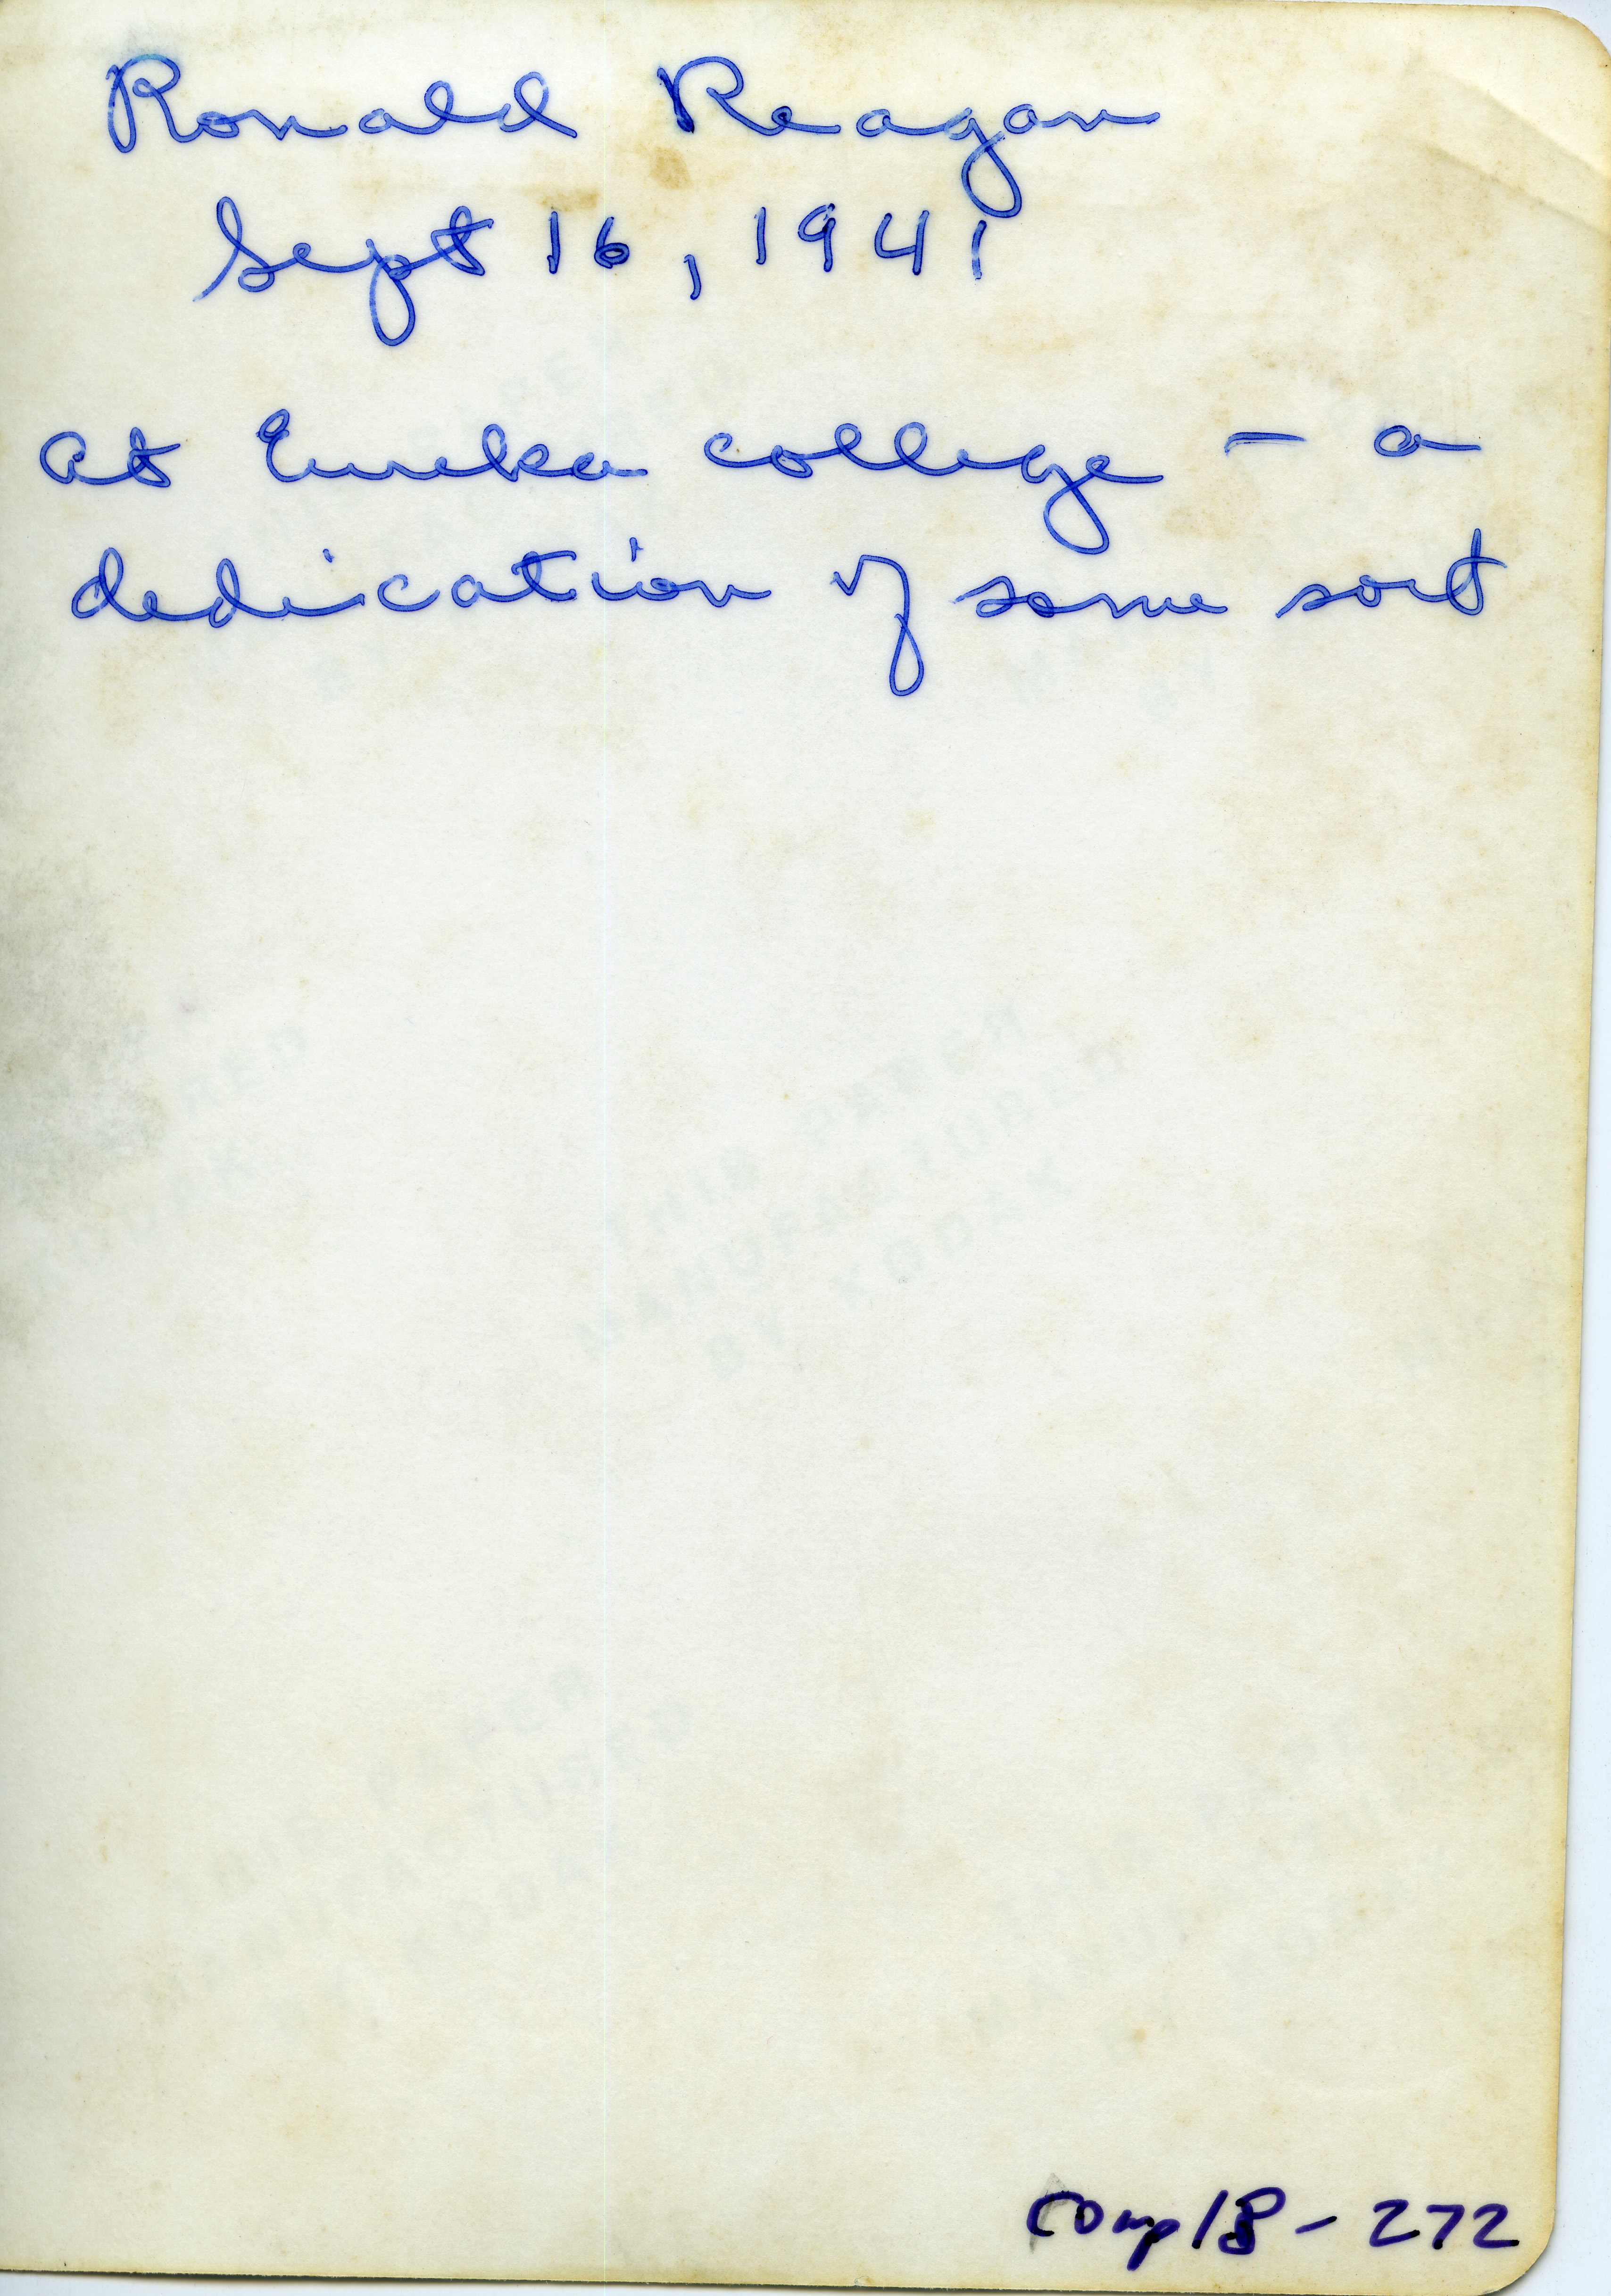 Ronald Reagan
Sept 16, 1941
at Eureka college - a
dedication of some sort
Comp 18 - 272